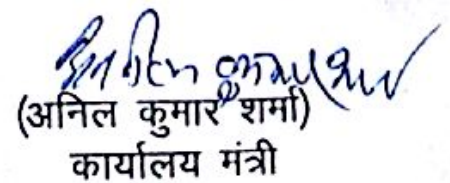 (अनिल कुमार शर्मा)
कार्यालय मंत्री